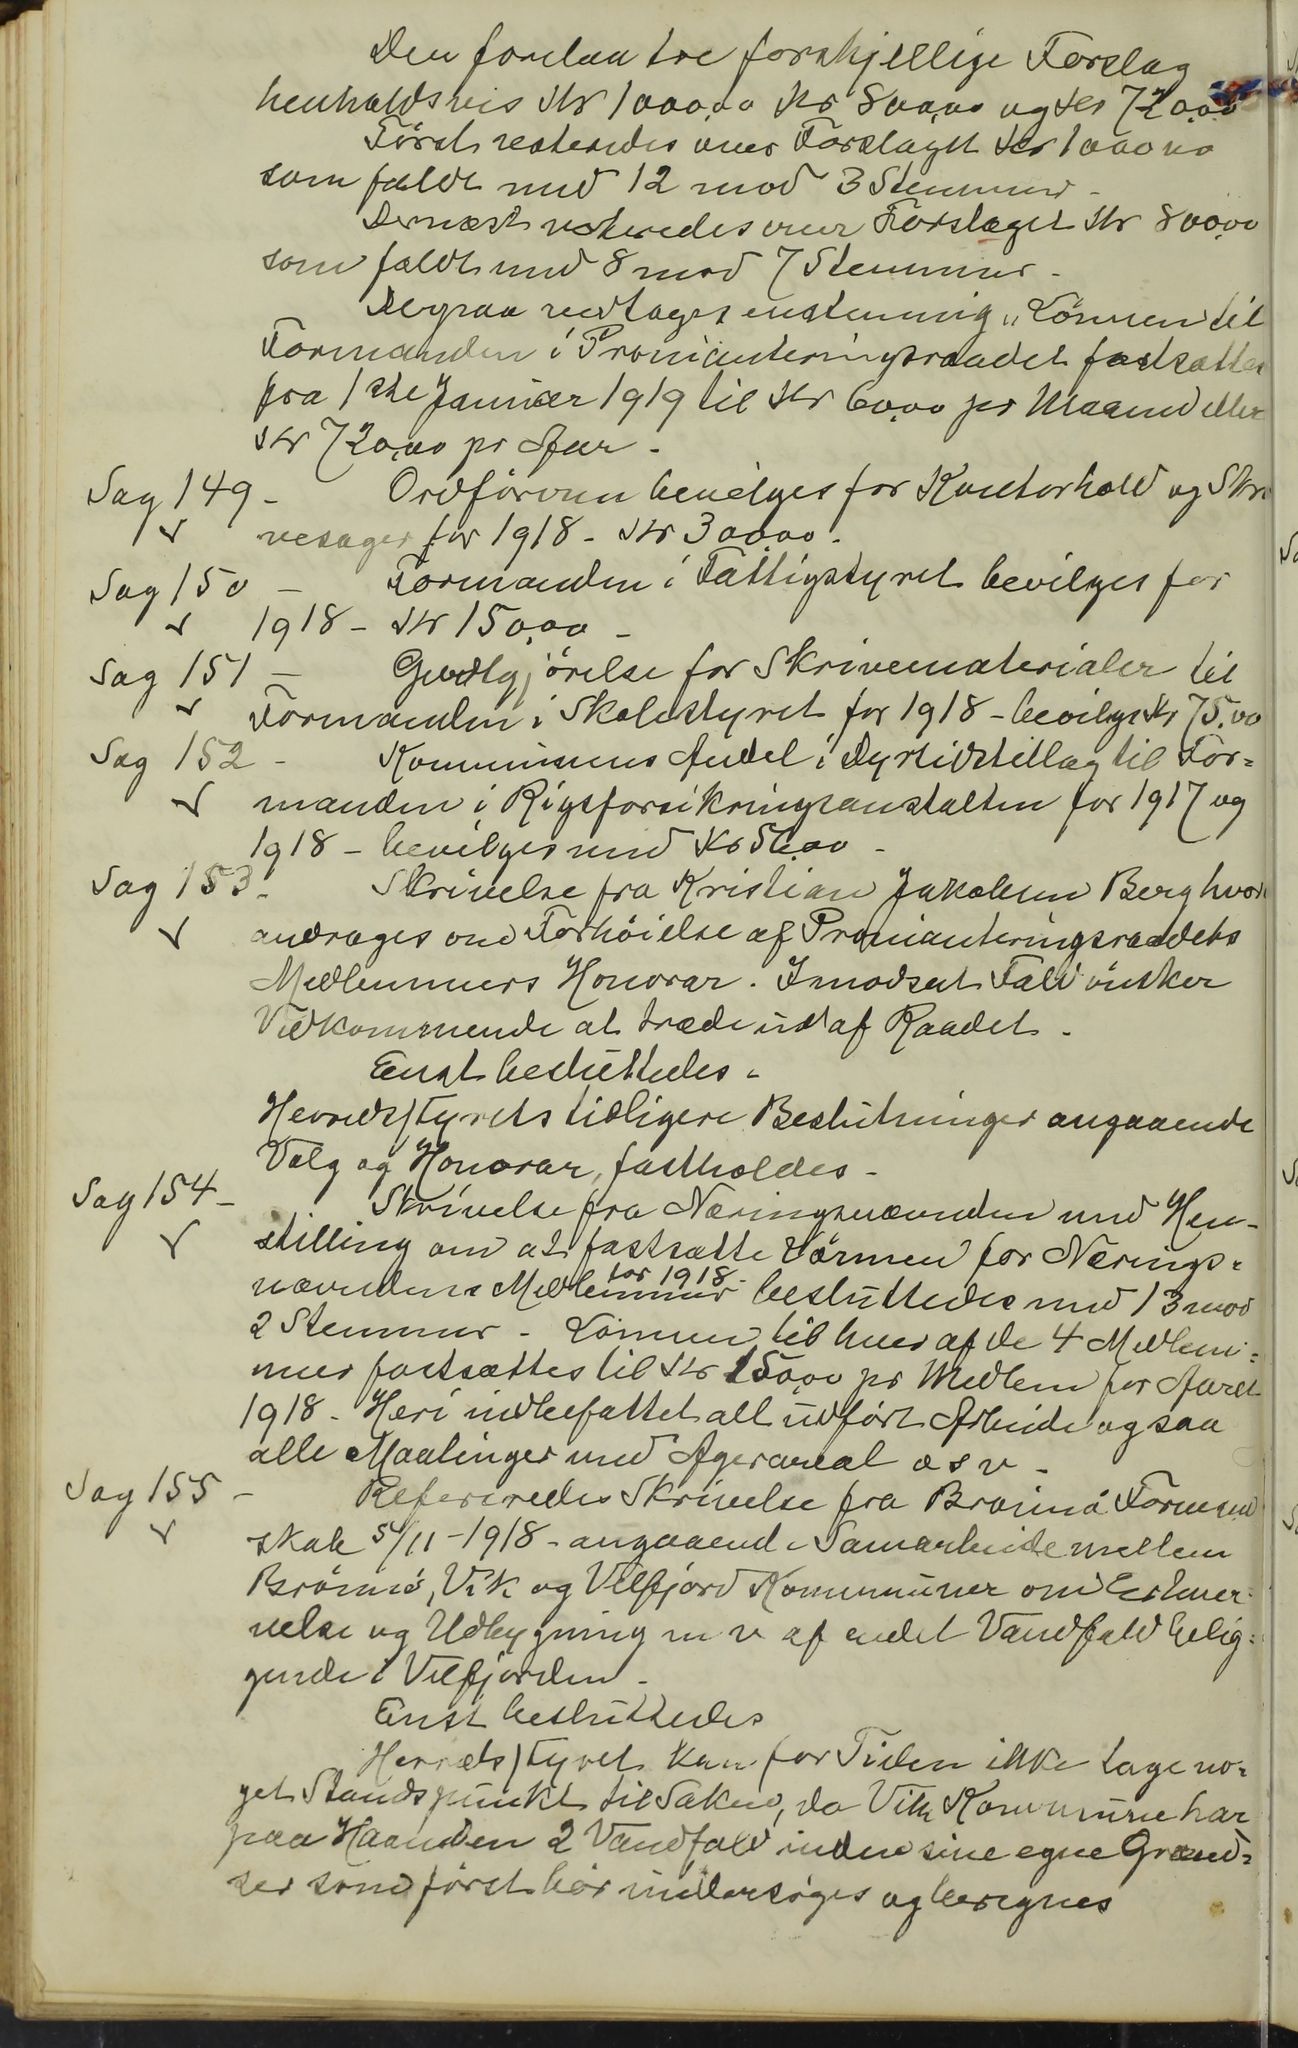 Den forelaa tre forskjellige Forslag
henholdsvis Kr 1000,00 Kr 800,00 og Kr 720,00
Först voteredes over Forslaget Kr 1000,00
som faldt med 12 mod 3 Stemmer -
Dernæst voteredes over Forslaget Kr 800,00
som faldt med 8 mod 7 Stemmer -
Derpaa vedtages enstemmig "Lönnen til
Formanden i Provianteringsraadet fastsættes
fra 1ste Januar 1919 til Kr 60,00 pr Maaned eller
Kr 720,00 pr Aar -
Sag 149 - Ordföreren bevilges for Kontorhold og Skri
vesager for 1918 - Kr 300,00.
Sag 150 - Formanden i Fattigstyret bevilges for
1918 - Kr 150,00 -
Sag 151 - Godtgjörelse for Skrivematerialer til
Formanden i Skolestyret for 1918 - bevilges Kr 75,00
Sag 152 - Kommunens Andel i Dyrtidstillæg til For=
manden i Rigsforsikringsanstalten for 1917 og
1918 - bevilges med Kr 56,00 -
Sag 153 - Skrivelse fra Kristian Jakobsen Berg hvori
andrages om Forhöielse af Provianteringsraadets
Medlemmers Honorar. I modsat Fald önsker
Vedkommende at træde ud af Raadet -
Enst besluttedes -
Herredsstyrets tidligere Beslutninger angaaende
Valg og Honorar, fastholdes -
Sag 154 - Skrivelse fra Næringsnævnden med Hen-
stilling om at fastsætte Lönnen for Nærings=
nævndens Medlemmer for 1918 - besluttedes med 13 mod
2 Stemmer - Lönnen til hver af de 4 Medlem=
mer fastsættes til Kr 150,00 pr Medlem for Aaret
1918 - Heri indbefattet alt udfört Arbeide ogsaa
alle Maalinger med Agerareal o s v -
Sag 155 - Refereredes Skrivelse fra Brönnö Formand
skab 5/11 - 1918 - angaaende Samarbeide mellem
Brönnö, Vik og Velfjord Kommuner om Erhver=
velse og Udbygning m v af endel Vandfald belig=
gende i Velfjorden -
Enst besluttedes
Herredsstyret kan for Tiden ikke tage no=
get Standspunkt til Saken, da Vik Kommune har
paa Haanden 2 Vandfald inden sine egne Grænd=
ser som först bör undersöges og beregnes